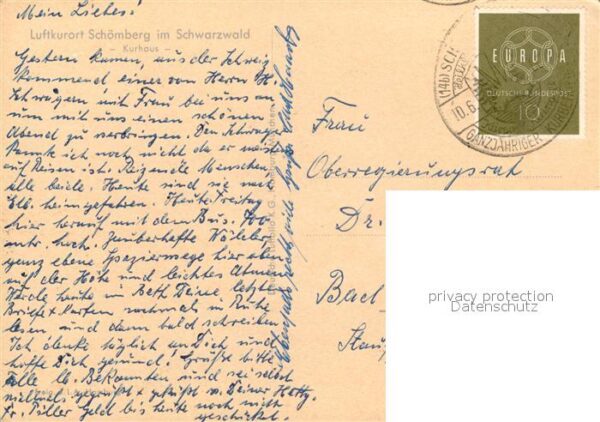 Mein Liebes!
Luftkurort Schömberg im Schwarzwald
- Kurhaus -
Gestern kamen, aus der Schweiz
kommend einer von Herrn H.
Schwägern mit Frau bei uns an
um mit uns einen schönen
Abend zu verbringen. Den Schwager
kannte ich noch nicht da er meist
auf Reisen ist. Reizende Menschen
alle beide. Heute sind sie nach
heimgefahren. Heute Freitag
hier herauf mit dem Bus.
mtr. hoch. Zauberhafte Wälder,
ganz ebene Spazierwege hier oben
auf der Höhe und leichtes Atmen
Werde heute im Bett Deine letzten
Briefe + Karten nochmals in Ruhe
lesen und dann bald schreiben.
Ich denke täglich an Dich und
hoffe Dich gesund! Grüßt bitte
alle lb. Bekannten und sei selbst
vielmals gegrüßt + geküßt v. Deiner Hetty
Fr. Tiller Geld bis heute noch nicht
geschickt.
EUROPA
DEUTSCHE BUNDESPOST
10
(14b) SCH
10.6.
GANZJÄHRIGER
Frau
Oberregierungsrat
Dr.
Bad
privacy protection
Datenschutz